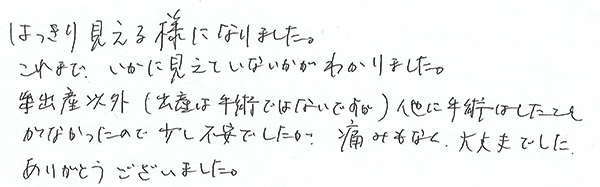 はっきり見える様になりました。
これまで、いかに見えていないかがわかりました。
出産以外(出産は手術ではないですが)他に手術はしたこと
がなかったので少し不安でしたが、痛みもなく、大丈夫でした。
ありがとうございました。